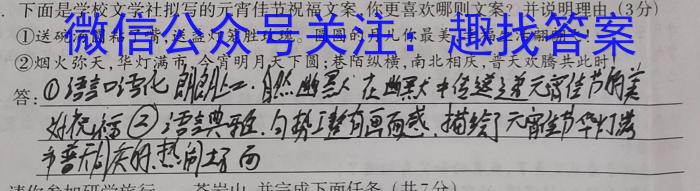 下面是学校文学社拟写的元宵佳节祝福文案,你更喜欢哪则文案?并说明理由。(3分)
微信公众号关注：趣找答案
②烟火弥天,华灯满市,今宵明月天下圆;巷陌纵横,南北相庆,普天欢腾共此时
答:①语言口语化 朗朗上口.自然幽默 在幽默中传递元宵佳节的美
好祝福②语言典雅.句势工整有画面感.描绘了元宵佳节华灯满
市普天同庆的热闹场面
请你参加研学旅行 苍岩山,并完成下面任务(共7分)